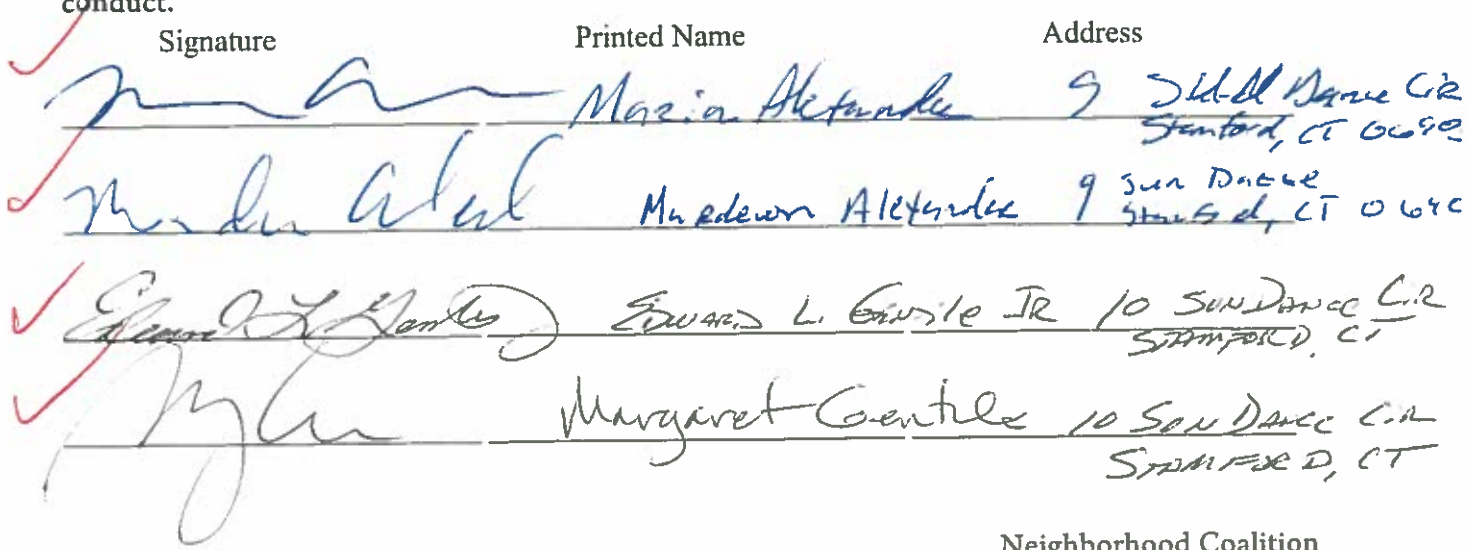 conduct.
Signature Printed Name Address
Maria Alexander 9 Dance Cir
Stamford, CT
Alexander 9 Sun Dance
CT
Edward L. Gentile JR 10 SUN DANCE CIR
STAMFORD, CT
Margaret Gentile 10 SUN DANCE CIR
STAMFORD, CT
Neighborhood Coalition